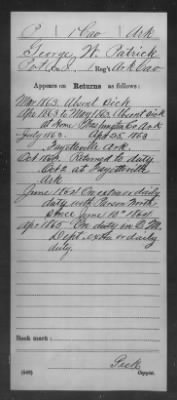 P 1 Cav Ark
George W. Patrick
Pvt, Co. L, 1 Reg't Ark Cav
Appears on Returns as follows:
Mar 1863. Absent Sick
Apr 1863 to May 1863 Absent Sick
at home Washington Co Ark
July 1863. Apr 25 1863
Fayetteville Ark.
Oct 1863. Returned to duty
Oct 2 at Fayetteville
Ark
June 1864 On extra or daily
duty with Parson North
since June 10th 1864
Apr 1865 On duty in Q. M.
Dept. extra or daily
duty.
Book mark:
Copyist.